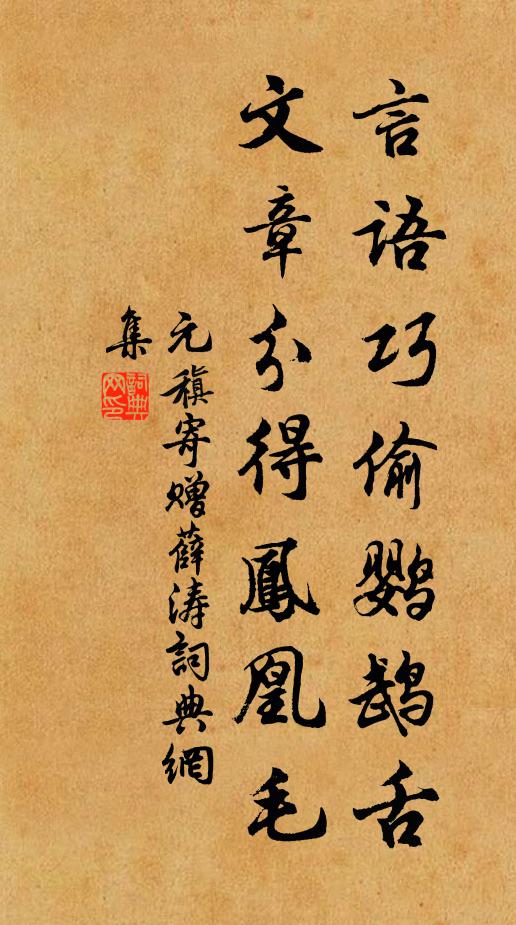 言語巧偷鹦鹉舌
文章分得鳳凰毛
元稹寄赠薛涛詞典網
集
詞典网印